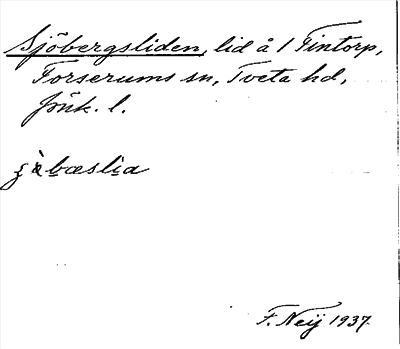 Sjöbergsliden, lid å 1 Tintorp,
Forserums sn, Tveta hd,
Jönk. l.
bæslia
F. Neij 1937.